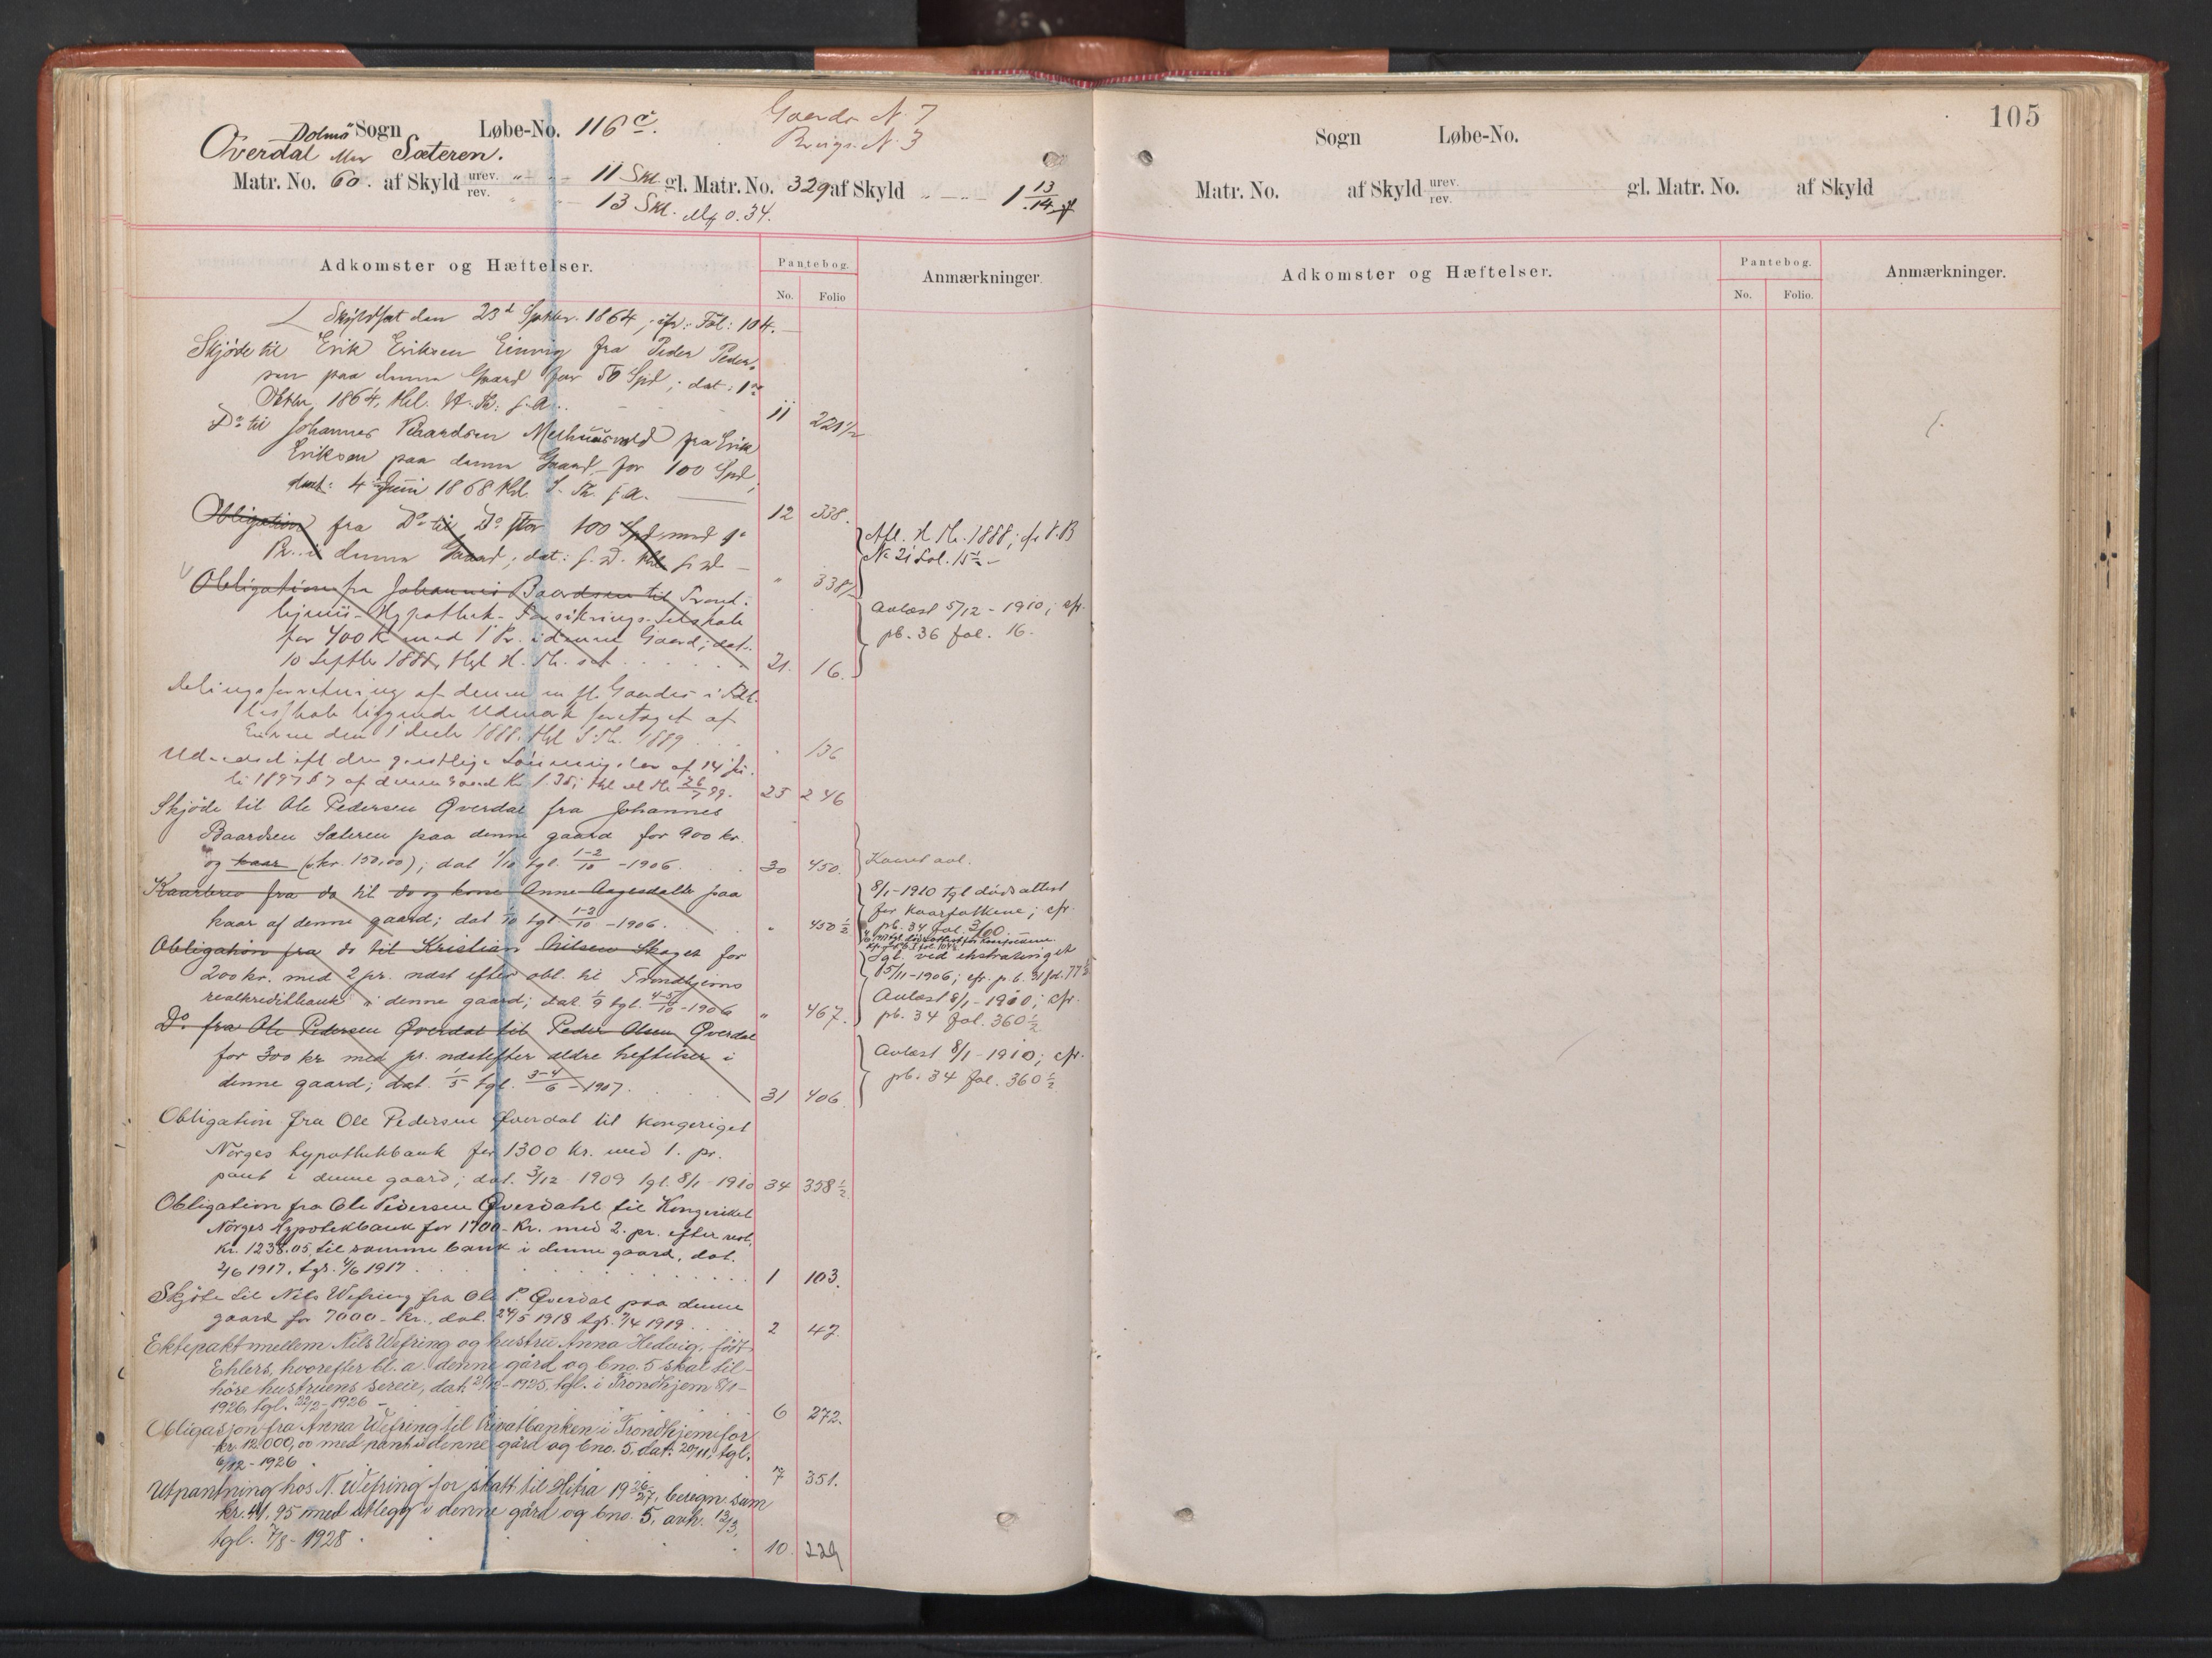 Dolmö Sogn Løbe-No. 116 c.
Gaards N. 7
Brugs. N. 3
Överdal eller Sæteren.
Matr. No. 60. af Skyld urev. " - - 11 Skl. gl. Matr. No. 329 af Skyld " - " - 1 13/14
rev. " - 13 Skl. Mk 0.34.
Adkomster og Hæftelser.
Pantebog.
No. Folio
Anmærkninger.
Skyldsat den 23d Septbr. 1864, cfr. Fol: 104.
Skjöde til Erik Eriksen Einvig fra Peder Peder-
sen paa denne Gaard for 50 Spd; dat: 1ste
Oktbr. 1864, thl. H. Th. s. A. 11 221 1/2
Do til Johannes Baardsen Melhuusvold fra Erik
Eriksen paa denne Gaard for 100 Spd,
dat: 4 Juni 1868 thl. S. Th. s. A. 12 338.
Obligation fra Do til Do stor 100 Spd, med 1ste
Pr. i denne Gaard; dat: s. D. thl. s. D. - " 338 1/2
Afl. H. Th. 1888; cfr. P.B
No 21 Fol. 15 1/2 -
Obligation fra Johannes Baardsen til Trond-
hjems Hypothek-Forsikrings-Selskab
for 400 Kr med 1 Pr. i denne Gaard; dat.
10 Septbr 1888, thgl H. Th. s. A. 21. 16.
Avlæst 5/12 - 1910; cfr.
pb. 36 fol. 16.
Delingsforretning af denne m. fl. Gaarde i
liggende Udmark foretaget af
den 1 Decbr 1888. thl S. Th. 1889 " 136
Udskrift den geistlige Lønnings. lov af 14 Ju-
li 1897 § 7 af denne Gaard Kr. 1.35; thl. 26/7 99. 25 246
Skjöde til Ole Pedersen Qverdal fra Johannes
Baardsen Sæteren paa denne gaard for 900 kr.
og kaar (kr. 150,00); dat 1/10 tgl. 1-2/10 - 1906. 30 450.
Kaaret avl.
Kaarbrev fra do til do og kone Anne Aagesdatter paa
kaar af denne gaard; dat 1/10 tgl. 1-2/10 - 1906. " 450 1/2
8/1-1910 tgl dødsattest
for kaarfolkene; cfr.
pb. 34 fol. 360.
Obligation fra do til Kristian Nilsen Skaget for
200 kr. med 2 pr. næst efter obl. til Trondhjems
realkreditbank i denne gaard; dat. 1/9 tgl. 4-5/10 - 1906 " 467.
Tgl. ved ekstratinget
15/11-1906; cfr. p.b. 31 fol. 77 1/2
Avlæst 8/1 - 1910; cfr.
pb. 34 fol. 360 1/2
Do. fra Ole Pedersen Qverdal til Peder Olsen Qverdal
for 300 kr med pr. næstefter ældre heftelser i
denne gaard; dat. 1/5 tgl. 3-4/6 - 1907. 31 406
Avlæst 8/1 - 1910; cfr.
pb. 34 fol. 360 1/2
Obligation fra Ole Pedersen Qverdal til Kongeriget
Norges hypothekbank for 1300 Kr. med 1. pr.
pant i denne gaard; dat. 3/12 1909 tgl. 8/1 1910 34 358 1/2
Obligation fra Ole Pedersen Qverdahl til Kongeriket
Norges Hypotekbank for 1700- Kr. med 2. pr. efter rest.
Kr. 1238.05, til samme bank i denne gaard, dat.
2/6 1917, tgl. 4/6 1917. 1 103.
Skjöte til Nils Wefring fra Ole P. Qverdal paa denne
gaard for 7000- Kr., dat. 24/5 1918 tgl. 7/4 1919. 2 47.
Ektepakt mellem Nils Wefring og hustru Anna Hedvig, född
Ehlers, hvorefter bl. a. denne gård og bno. 5 skal til-
höre hustruens særeie, dat. 21/12 - 1925, tgl. i Trondhjem 8/1 -
1926, tgl. 22/2 - 1926 - 6 272.
Obligasjon fra Anna Wefring til Privatbanken i Trondhjem for
kr. 12 000,00 med pant i denne gård og bno. 5, dat. 20/11, tgl.
6/12 - 1926 7 351.
Utpantning hos N. Wefring for skatt til Hitra 1926/27, beregn. sum
kr. 41,95 med utlegg i denne gård og bno. 5, avh. 13/3,
tgl. 7/8 - 1928. 10. 229
105
Sogn Løbe-No.
Matr. No. af Skyld urev. gl. Matr. No. af Skyld
rev.
Adkomster og Hæftelser.
Pantebog.
No. Folio.
Anmærkninger.